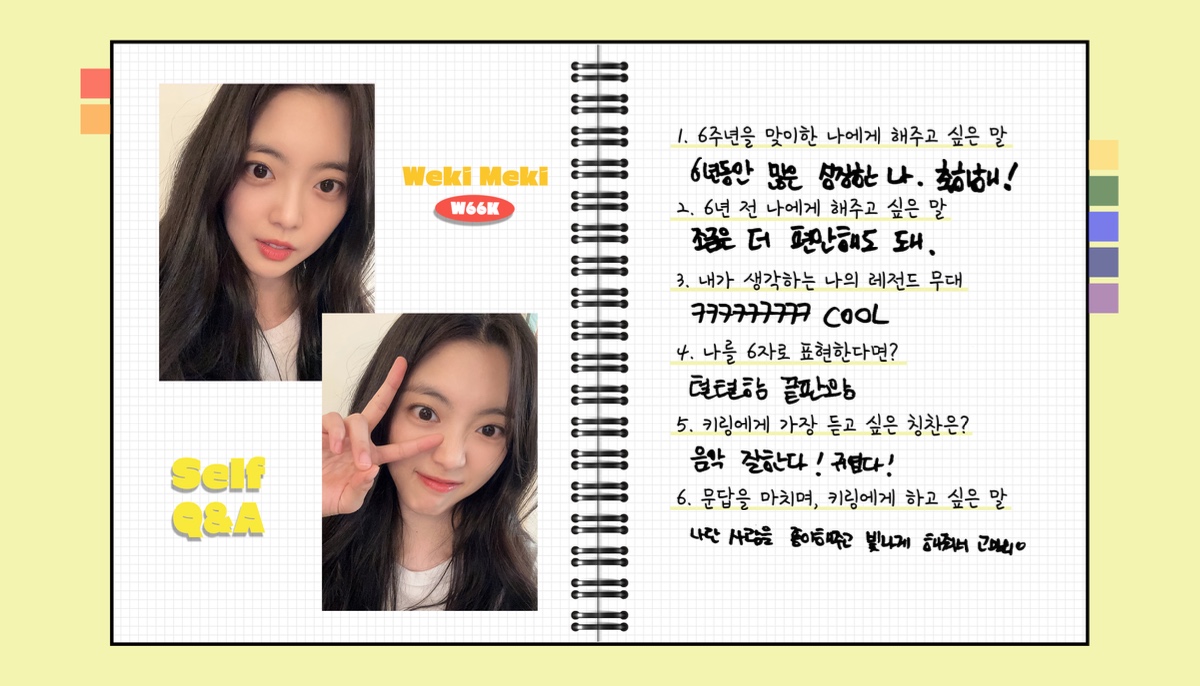 Weki Meki
W66K
Self
Q&A
1. 6주년을 맞이한 나에게 해주고 싶은 말
6년동안 많은 성장한 나. 축하해!
2. 6년 전 나에게 해주고 싶은 말
조금은 더 편안해도 돼.
3. 내가 생각하는 나의 레전드 무대
COOL
4. 나를 6자로 표현한다면?
털털함 끝판왕
5. 키링에게 가장 듣고 싶은 칭찬은?
음악 잘한다! 귀엽다!
6. 문답을 마치며, 키링에게 하고 싶은 말
나란 사람을 좋아해주고 빛나게 해줘서 고마워